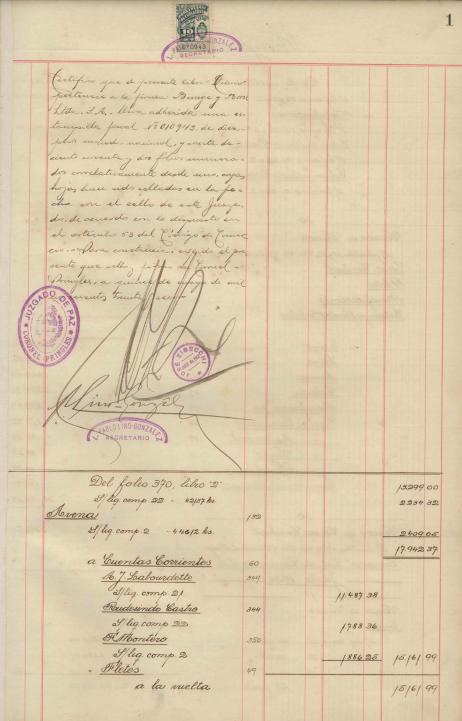 1
10
010943
L. PABLO LINO GONZALEZ
SECRETARIO
Certifico que el presente libro Diario
pertenece a la firma Bunge y Born
Ltda. S.A. lleva adherida una es-
tampilla fiscal Nº 010943 de diez
pesos moneda nacional, y consta de
ciento noventa y dos folios numera-
dos correlativamente desde uno, cuyas
hojas han sido selladas en la fe-
cha con el sello de este Juzga-
do, de acuerdo con lo dispuesto en
el artículo 53 del Código de Comer-
cio. - Para constancia, expido el pre-
sente que sello y firmo en Coronel
Pringles, a quince de de mil
novecientos treinta
JUZGADO DE PAZ
CORONEL PRINGLES
JOSE
Lino Gonzalez
L. PABLO LINO GONZALEZ
SECRETARIO
Del folio 370, libro 2º 13299 00
S/liq. comp. 22 - 42157 ks. 2234 32
Avena 132
S/liq. comp. 2 - 44612 ks. 2409 05
17942 37
a Cuentas Corrientes 60
A. J. Labourdette
S/liq. comp. 21 11487 38
Rudesindo Castro 344
S/liq. comp. 22 1788 36
F. Montero 350
S/liq. comp. 2 1886 25 15161 99
" Fletes 49
a la vuelta 15161 99